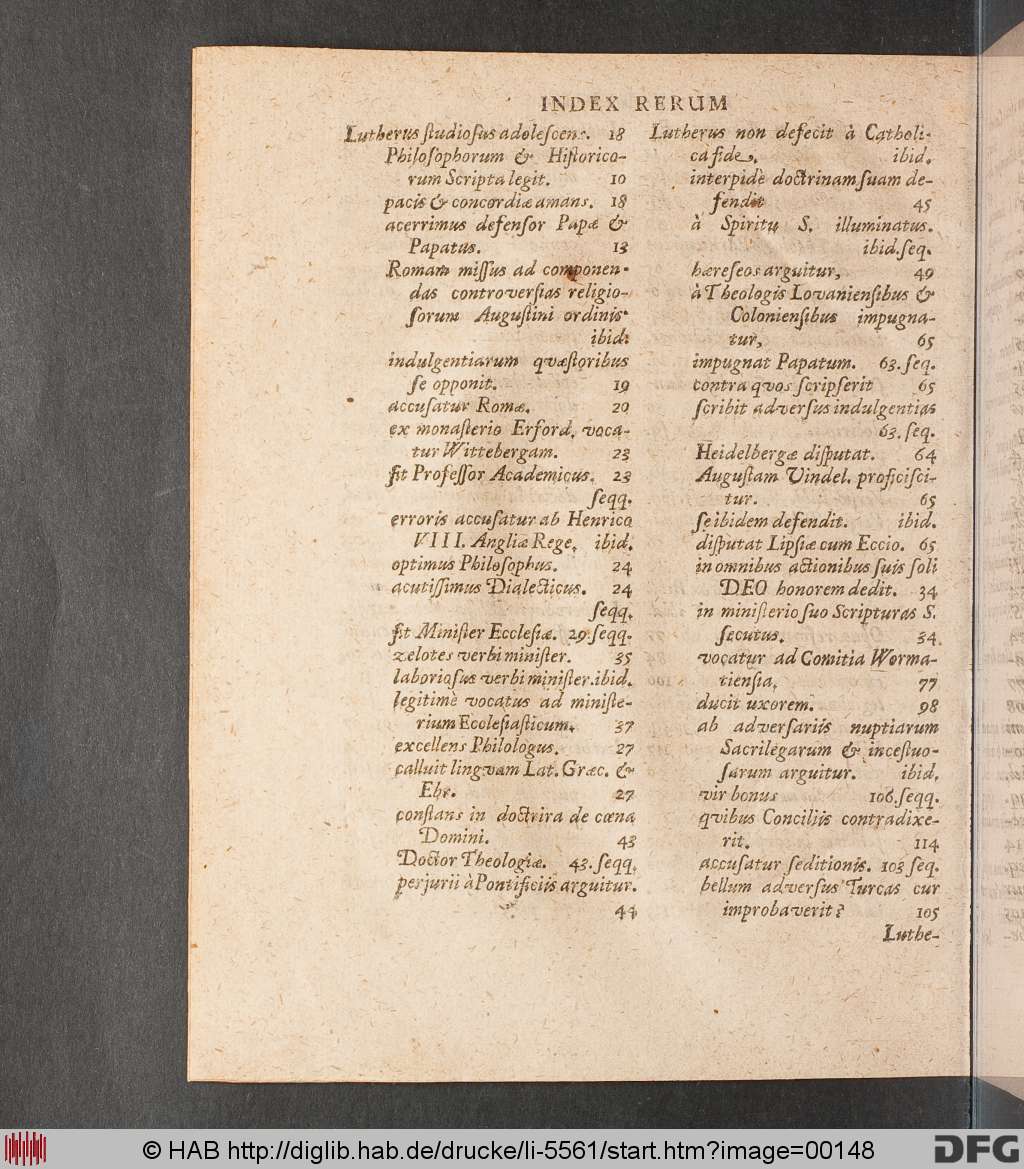 INDEX RERUM
Lutherus studiosus adolescens. 18
Philosophorum & Historico-
rum Scripta legit. 10
pacis & concordiæ amans. 18
acerrimus defensor Papæ &
Papatus. 13
Romam missus ad componen-
das controversias religio-
sorum Augustini ordinis.
ibid.
indulgentiarum qvæstoribus
se opponit. 19
accusatur Romæ. 20
ex monasterio Erford. voca-
tur Wittebergam. 23
fit Professor Academicus. 23
seqq.
erroris accusatur ab Henrico
VIII. Angliæ Rege. ibid.
optimus Philosophus. 24
acutissimus Dialecticus. 24
seqq.
fit Minister Ecclesiæ. 29. seqq.
zelotes verbi minister. 35
laboriosus verbi minister. ibid.
legitimè vocatus ad ministe-
rium Ecclesiasticum. 37
excellens Philologus. 27
calluit lingvam Lat. Græc. &
Ebr. 27
constans in doctrira de cœna
Domini. 43
Doctor Theologiæ. 43. seqq.
perjurii à Pontificiis arguitur.
44
Lutherus non defecit à Catholi-
câ fide. ibid.
interpidè doctrinam suam de-
fendit 45
à Spiritu S. illuminatus.
ibid. seq.
hæreseos arguitur, 49
à Theologis Lovaniensibus &
Coloniensibus impugna-
tur, 65
impugnat Papatum. 63. seq.
contra quos scripserit 65
scribit adversus indulgentias
63. seq.
Heidelbergæ disputat. 64
Augustam Vindel. proficisci-
tur. 65
se ibidem defendit. ibid.
disputat Lipsiæ cum Eccio. 65
in omnibus actionibus suis soli
DEO honorem dedit. 34
in ministerio suo Scripturas S.
secutus. 34
vocatur ad Comitia Worma-
tiensia. 77
ducit uxorem. 98
ab adversariis nuptiarum
Sacrilegarum & incestuo-
sarum arguitur. ibid.
vir bonus 106. seqq.
qvibus Conciliis contradixe-
rit. 114
accusatur seditionis. 103 seq.
bellum adversus Turcas cur
improbaverit? 105
Luthe-
© HAB http://diglib.hab.de/drucke/li-5561/start.htm?image=00148
DFG